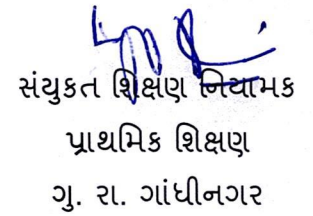 સંયુકત શિક્ષણ નિયામક
પ્રાથમિક શિક્ષણ
ગુ. રા. ગાંધીનગર